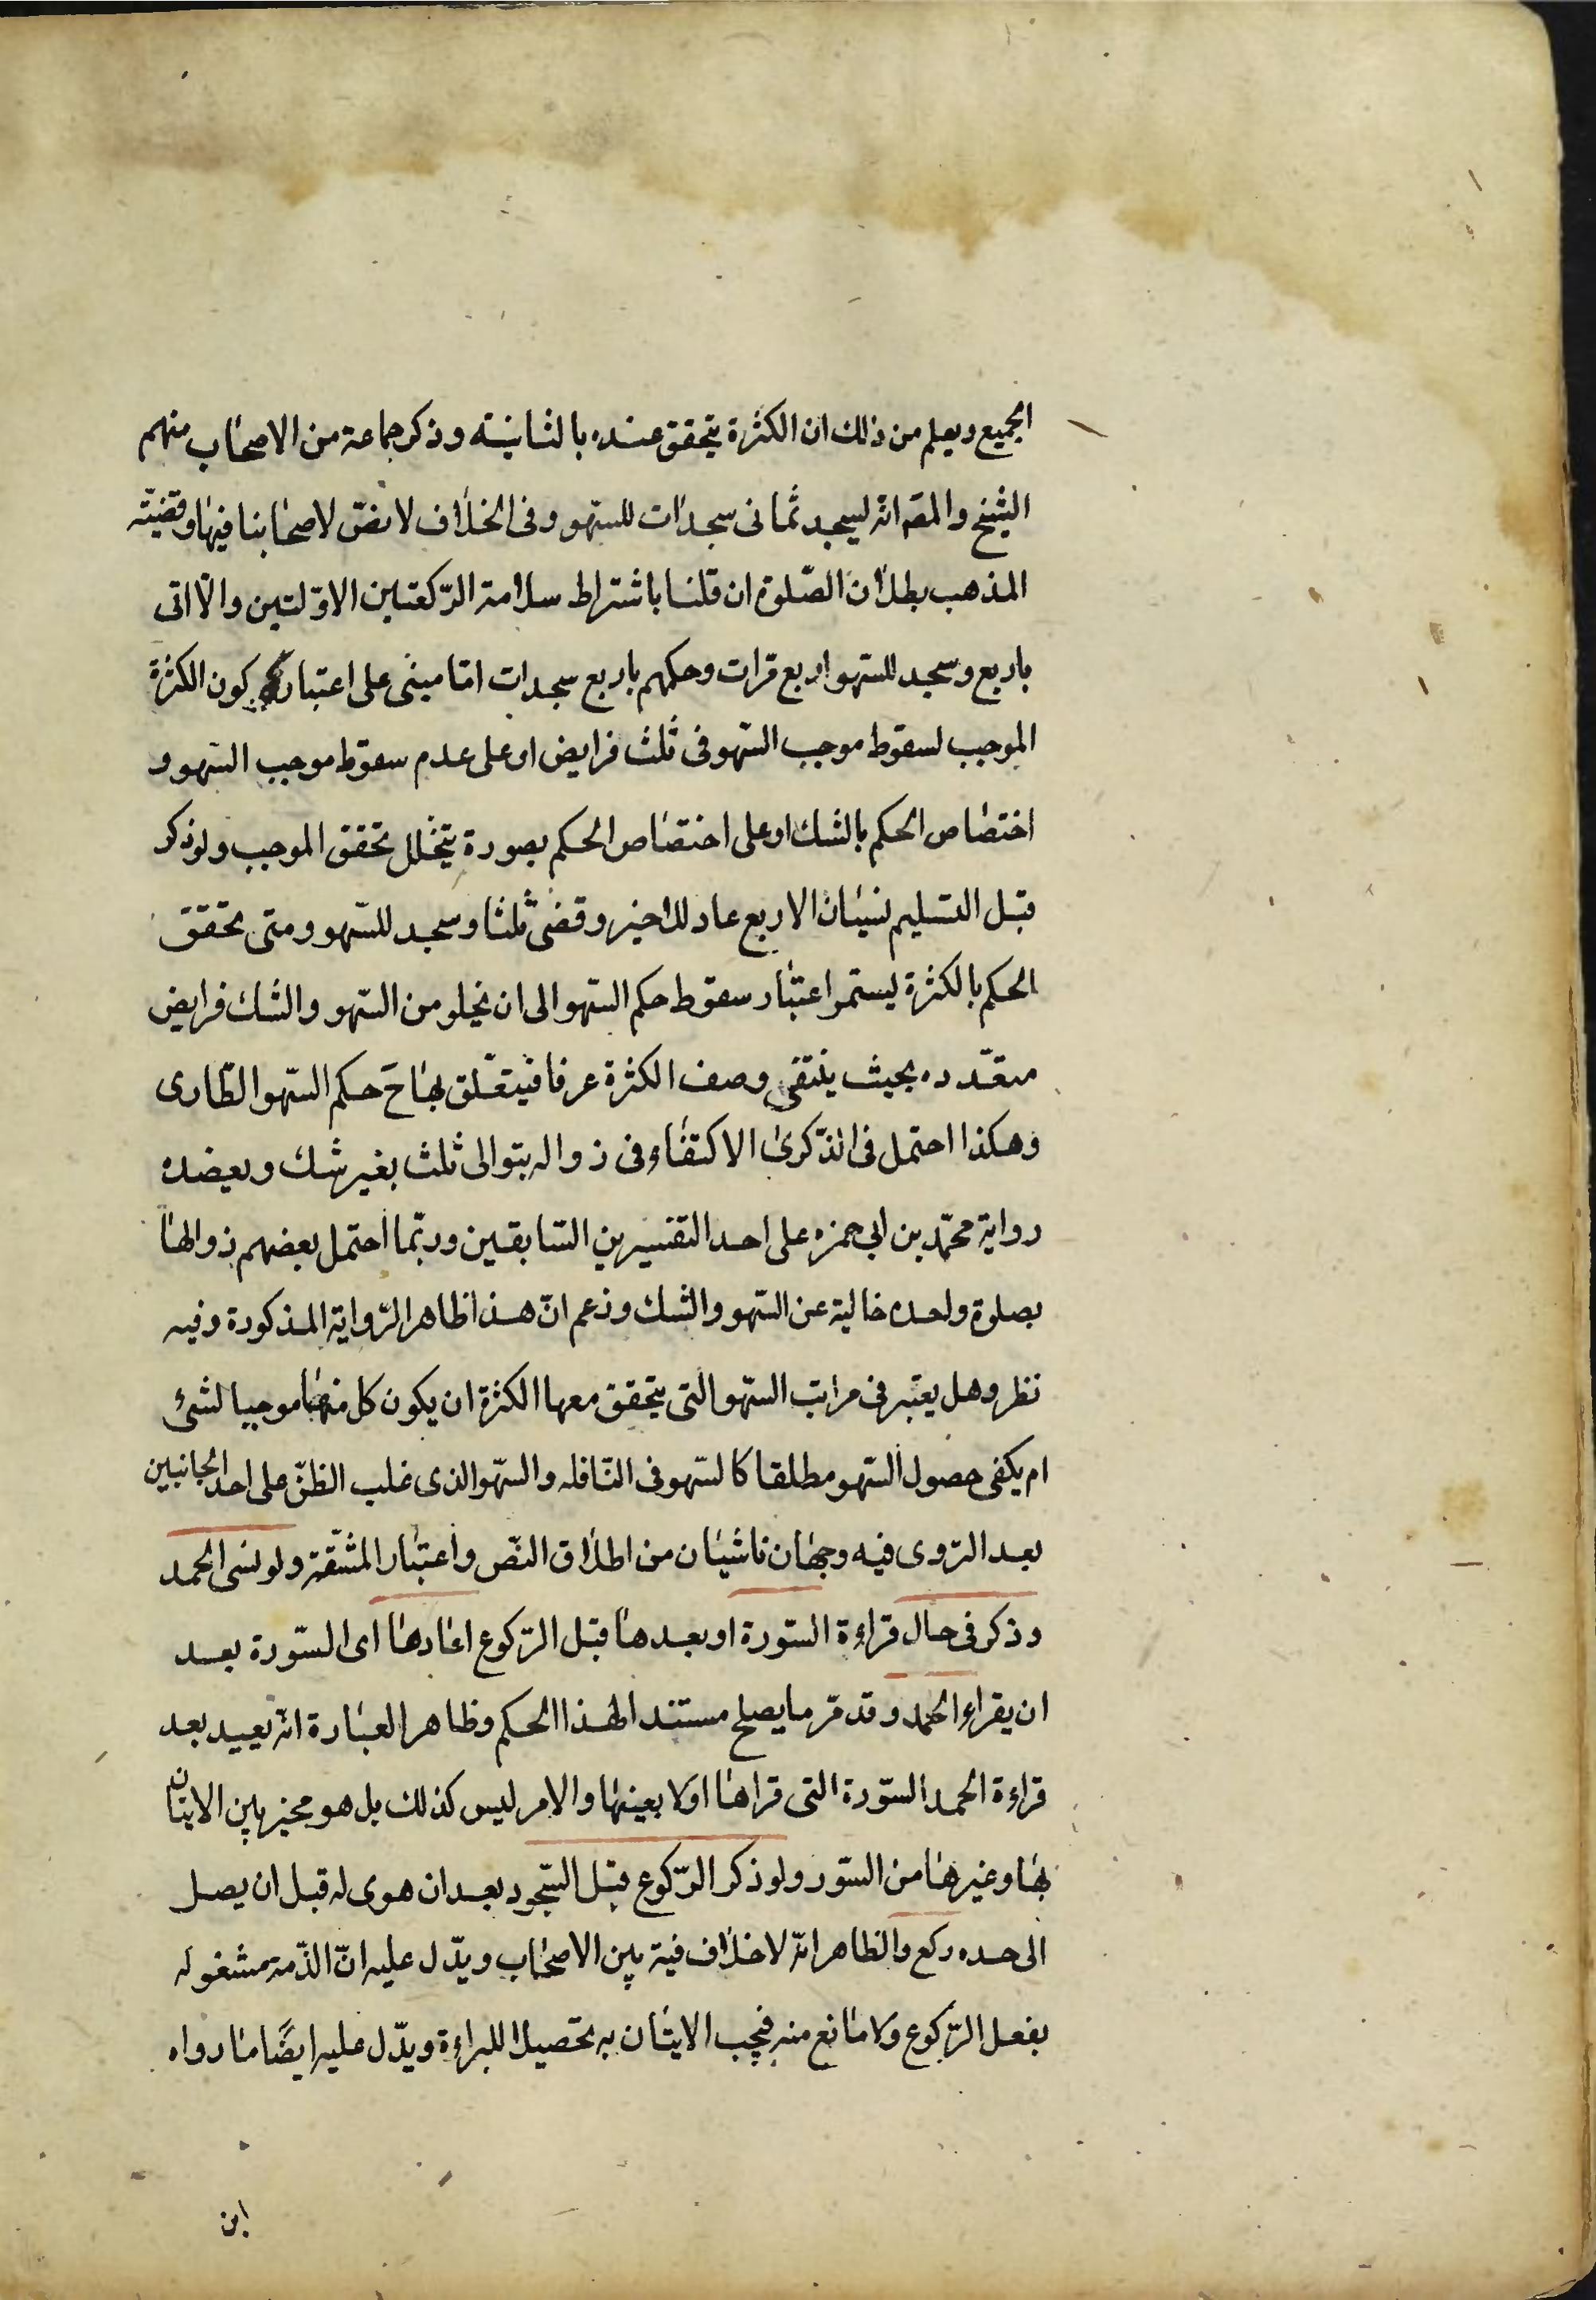 الجميع ويعلم من ذلك ان الكثرة يتحقق عنده بالثانية وذكر جماعة من الاصحاب منهم
الشيخ والمصّ انه ليسجد ثمانى سجدات للسّهو وفى الخلاف لا نصّ لاصحابنا فيها وقضيّة
المذهب بطلان الصّلوة ان قلنا باشتراط سلامة الرّكعتين الاوّلتين والّا اتى
باربع وسجد للسّهو اربع مرات وحكمهم باربع سجدات امّا مبنى على اعتبار كون الكثرة
الموجب لسقوط موجب السّهو فى ثلث فرايض او على عدم سقوط موجب السّهو و
اختصاص الحكم بالشك او على اختصاص الحكم بصورة يتخلل تحقق الموجب ولو ذكر
قبل التسليم نسيان الاربع عاد للاخير وقضى ثلثا وسجد للسّهو ومتى تحقق
الحكم بالكثرة ليستمر اعتبار سقوط حكم السّهو الى ان يخلو من السّهو والشك فرايض
متعدّده بحيث ينتفى وصف الكثرة عرفا فيتعلّق بها حَ حكم السّهو الطّارى
وهكذا احتمل فى الذّكرى الاكتفاء فى زواله بتوالى ثلث بغير شك ويعضده
رواية محمّد بن ابى حمزه على احد التفسيرين السّابقين وربّما احتمل بعضهم زوالها
بصلوة واحده خالية عن السّهو والشك وزعم انّ هذا ظاهر الرّواية المذكورة وفيه
نظر وهل يعتبر فى مراتب السّهو التى يتحقق معها الكثرة ان يكون كل منها موجبا لشئ
ام يكفى حصول السّهو مطلقا كالسّهو فى النّافله والسّهو الذى غلب الظنّ على احد الجانبين
بعد التروى فيه وجهان ناشيان من اطلاق النّص واعتبار المشقّة ولو نسى الحمد
وذكر فى حال قراءة السّورة او بعدها قبل الرّكوع اعادها اى السّورة بعد
ان يقراء الحمد وقد مرّ ما يصلح مستندا لهذا الحكم وظاهر العبارة انه يعييد بعد
قراءة الحمد السّورة التى قراها اولا بعينها والامر ليس كذلك بل هو مخير بين الاتيان
بها وغيرها من السّور ولو ذكر الرّكوع قبل السّجود بعد ان هوى له قبل ان يصل
الى حده ركع والظاهر انّه لا خلاف فيه بين الاصحاب ويدّل عليه انّ الذّمة مشغوله
بفعل الرّكوع ولا مانع منه فيجب الاتيان به تحصيلا للبراءة ويدّل عليه ايضًا ما رواه
ابن